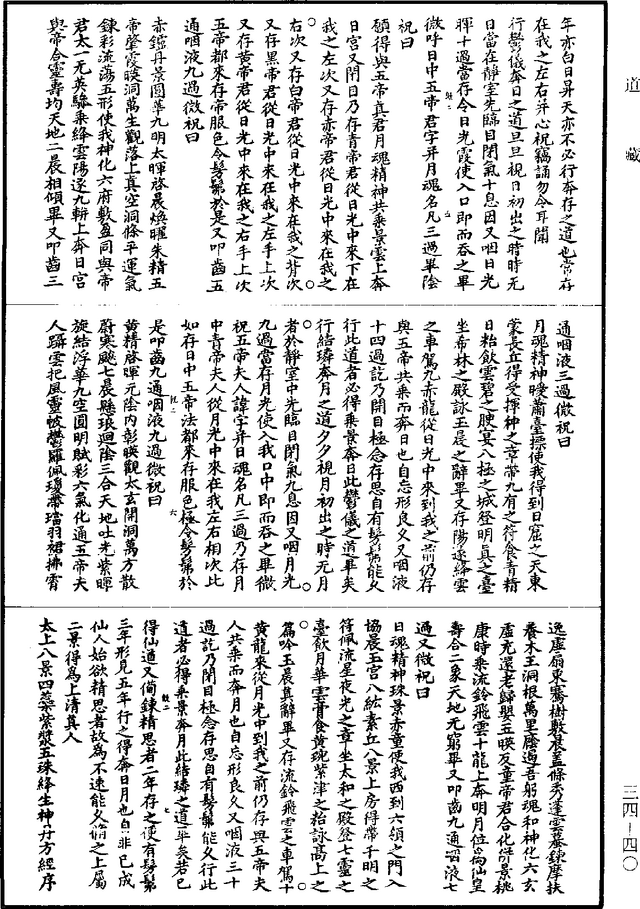 道藏
年亦白日昇天亦不必行奔存之道也當存
在我之左右并心祝竊誦勿令耳聞
行鬱儀奔日之道旦旦視日初出之時時无
日當在靜室先臨目閉氣十息因又咽日光
暉十過當存令日光霞使入口即而吞之畢
微呼日中五帝君字并月魂名凡三過畢陰
祝曰
願得與五帝真君月魂精神共乘景雲上奔
日宮又閉目乃存青帝君從日光中來下在
我之左次又存赤帝君從日光中來在我之
右次又存白帝君從日光中來在我之背次
又存黑帝君從日光中來在我之左手上次
又存黃帝君從日光中來在我之右手上次
五帝都來存帝服色令髣髴於是又叩齒五
通咽液九過微祝曰
赤鑪丹景圓華九明太暉啓晨煥曜朱精五
帝肇霞暎洞萬生觀落上真空洞條平運氣
鍊彩流蕩五形使我神化六府數盈同與帝
君太一无英驂乘絳雲陽遂九軿上奔日宮
與帝合靈壽均天地二晨相傾畢又叩齒三
通咽液三過微祝曰
月魂精神曖蕭臺摽使我得到日窟之天東
蒙長丘得受揮神之章帶九有之符食青精
日粭飲雲碧之腴宴八極之城登明真之臺
坐希林之殿詠玉晨之辭畢又存陽遂絳雲
之車駕九赤龍從日光中來到我之前仍存
與五帝共乘而奔日也自忘形良久又咽液
十四過訖乃開目極念存思自有髣髴能久
行此道者必得乘景奔日此鬱儀之道畢矣
行結璘奔月之道夕夕視月初出之時无月
者於靜室中先臨目閉氣九息因又咽月光
九過當存月光使入我口中即而吞之畢微
祝五帝夫人諱字并日魂名凡三過乃存月
中青帝夫人從月光中來在我左右相次比
如存日中五帝法都來存服色極令髣髴於
是叩齒九通咽液九過微祝曰
黃精啓暉元陰內彰暎觀太玄開洞萬方散
蔚寒飈七晨懸琅迴陰三合天地吐光紫暉
旋結浮華九空圓明賦彩六氣化通五帝夫
人躡雲把風靈帔鬱羅佩瓊帶璫羽裙拂霄
逸虛扇東騫樹敷晨蓋條秀蓬雲蒼鍊摩扶
養木王洞根萬里廕遏吾躬魂和神化六玄
虛充還老歸嬰五暎反童帝君合化衍景桃
康時乘流鈴飛雲十龍上奔明月位爲仙皇
壽合二象天地无窮畢又叩齒九通咽液七
過又微祝曰
日魂精神珠景赤童使我西到六領之門入
協晨玉宮八絃素丘八景上房得帶千明之
符佩流星夜光之章坐太和之殿登七靈之
臺飲月華雲膏食黃琬紫津之粭詠高上之
篇吟玉晨真辭畢又存流鈴飛雲之車駕十
黃龍來從月光中到我之前仍存與五帝夫
人共乘而奔月也自忘形良久又咽液三十
過訖乃開目極念存思自有髣髴能久行此
道者必得乘景奔月此結璘之道畢矣若已
得仙道又倘鍊精思者二年存之便有髣髴
三年形見五年行之得奔日月也自非已成
仙人始欲精思者故爲不速能久脩之上屬
二景得爲上清真人
太上八景四蘂紫漿五珠絳生神丹方經序
三四－四〇